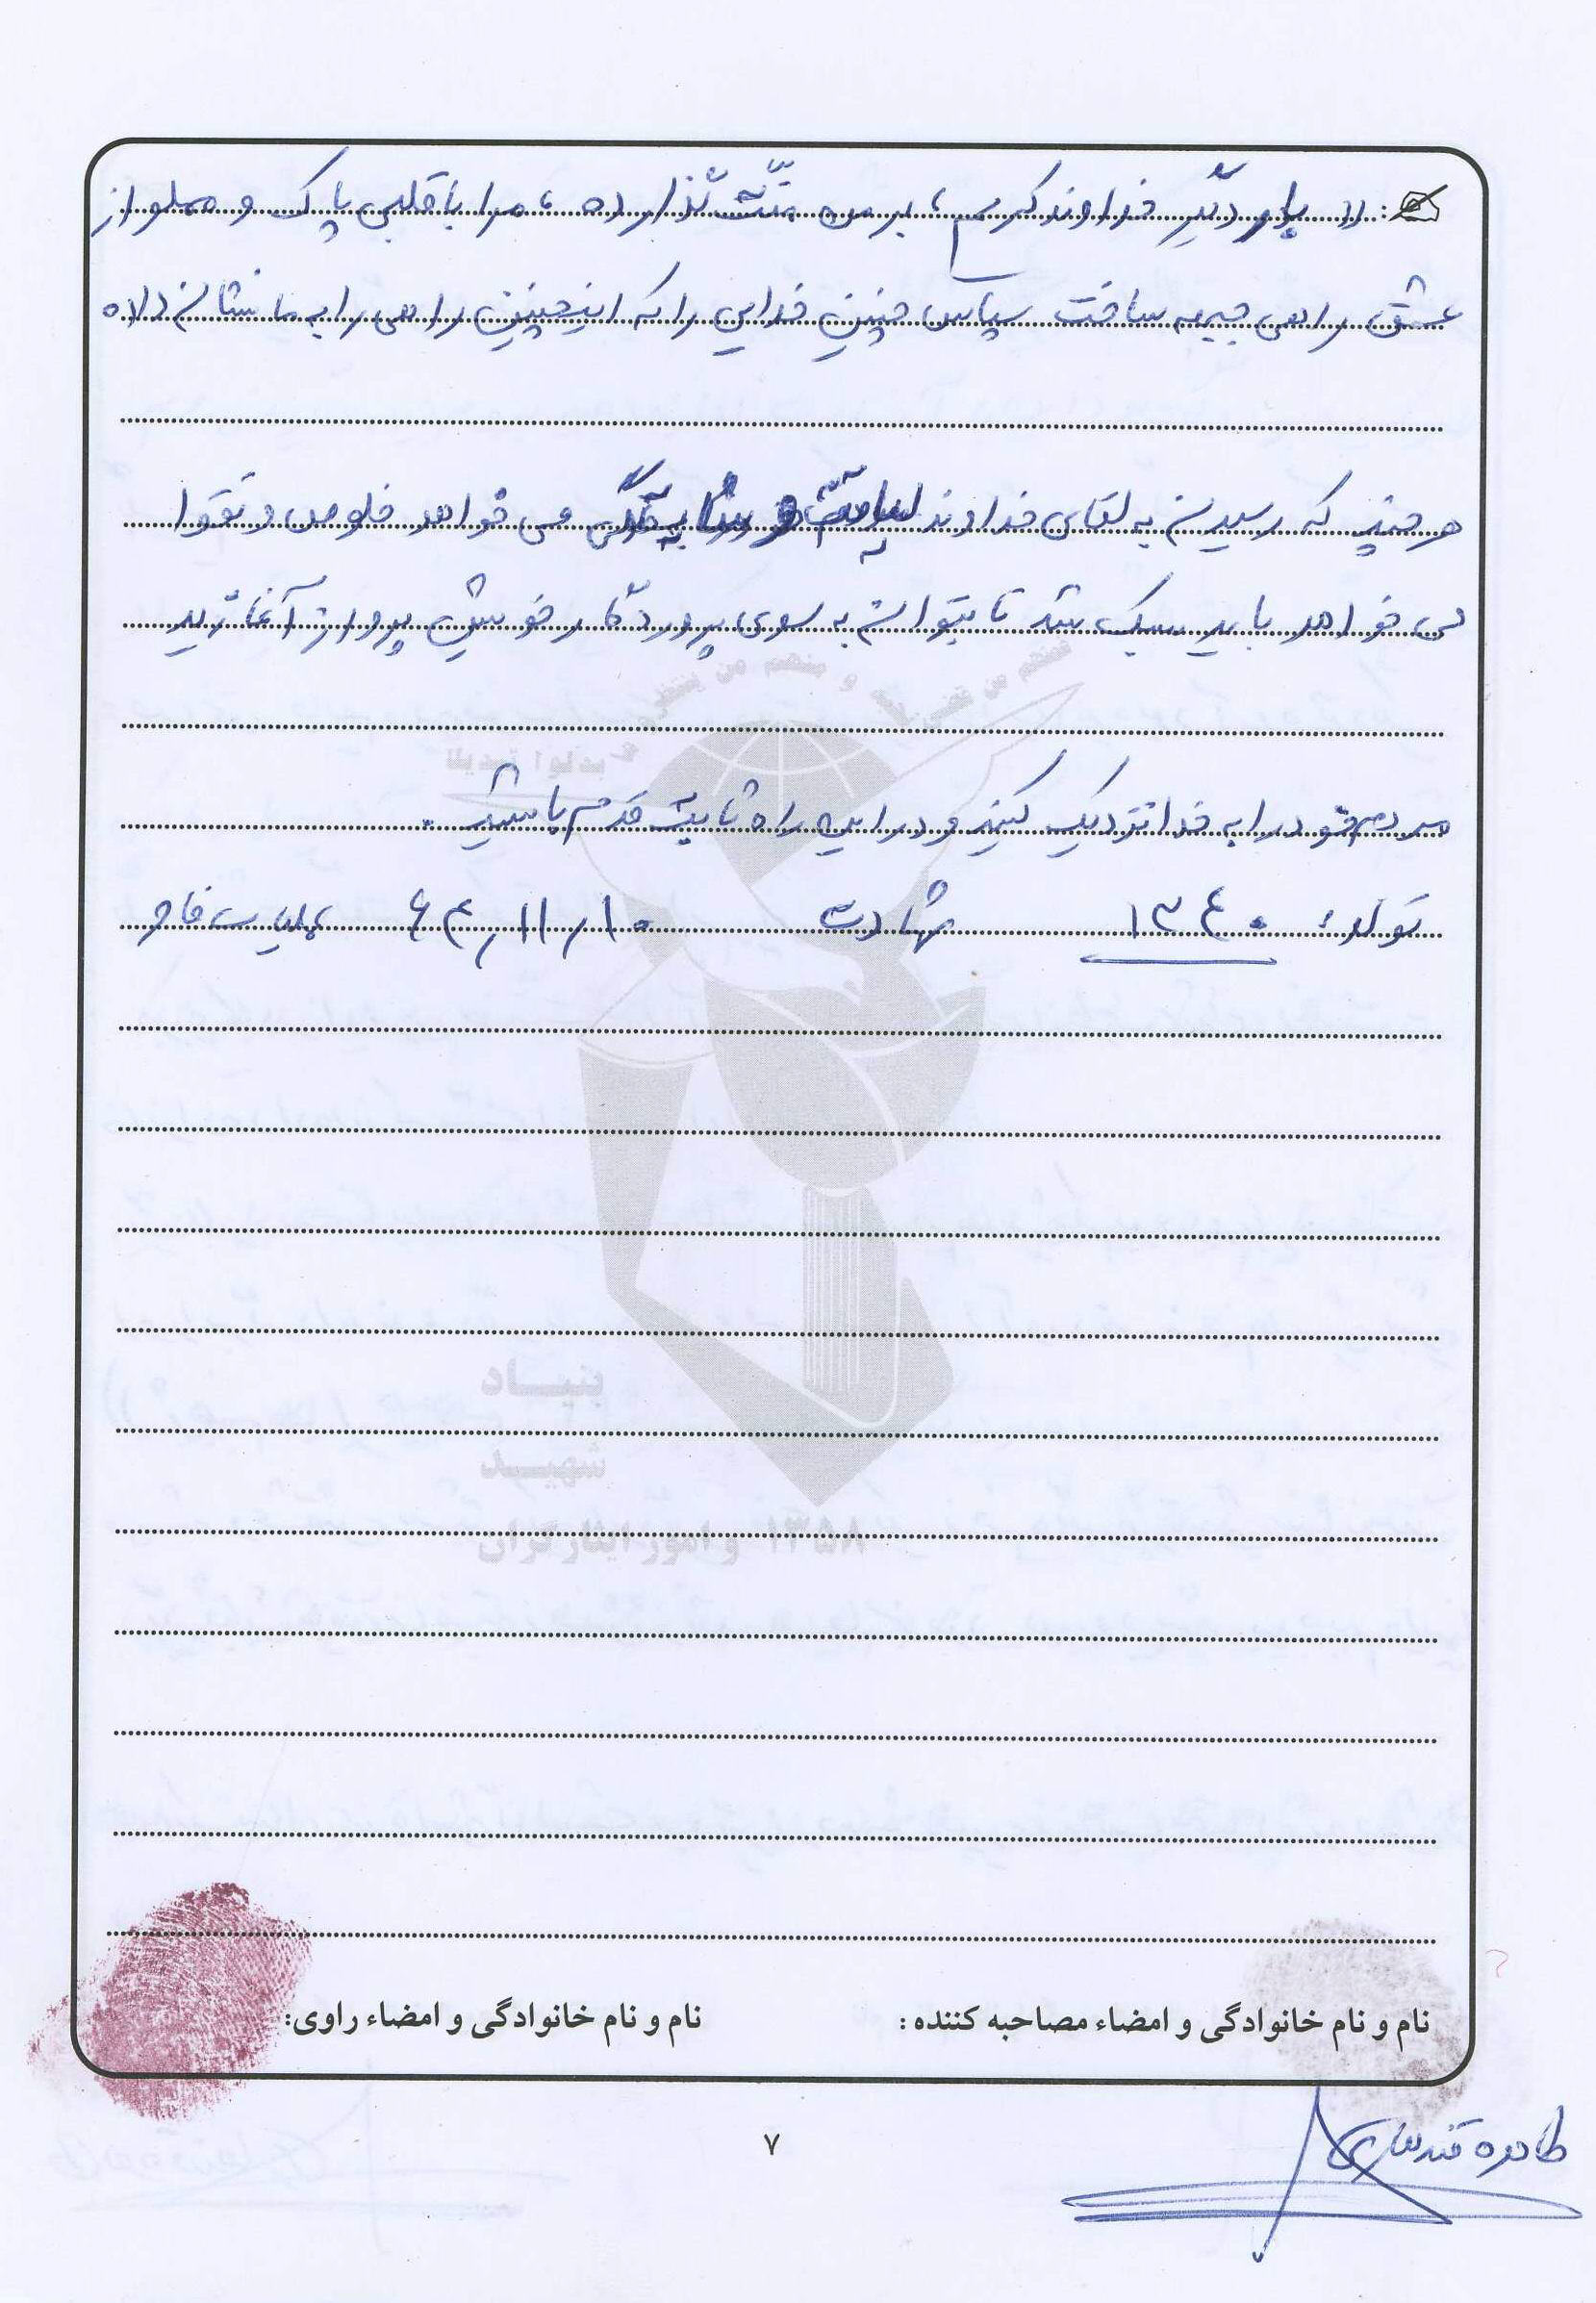 « بار دیگر خداوند کریم ، بر من منّت گذارده ، مرا با قلبی پاک و مملو از
عشق راهی جبهه ساخت سپاس چنین خدایی را که اینچنین راهی را به ما نشان داده
هر چند که رسیدن به لقای خداوند لیاقت و شایستگی می خواهد خلوص و تقوا
می خواهد باید سبک شد تا بتوان به سوی پروردگار خویش پرواز آغازید
مردم خود را به خدا نزدیک کنید و در این راه ثابت قدم باشید .
تولد : ١٣٤٠ شهادت ٦٤/١١/١٠ عملیات فاو
بنیاد
شهید
و امور ایثارگران ۱۳۵۸
نام و نام خانوادگی و امضاء مصاحبه کننده : نام و نام خانوادگی و امضاء راوی:
طاهره قندهاری
۷